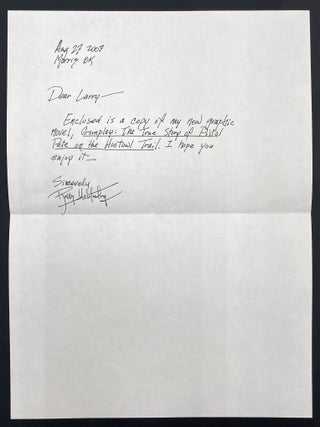 Aug 27 2007
Morris OK
Dear Larry—
Enclosed is a copy of my new graphic
novel, Gunplay: The True Story of Pistol
Pete on the Hootowl Trail. I hope you
enjoy it—
Sincerely